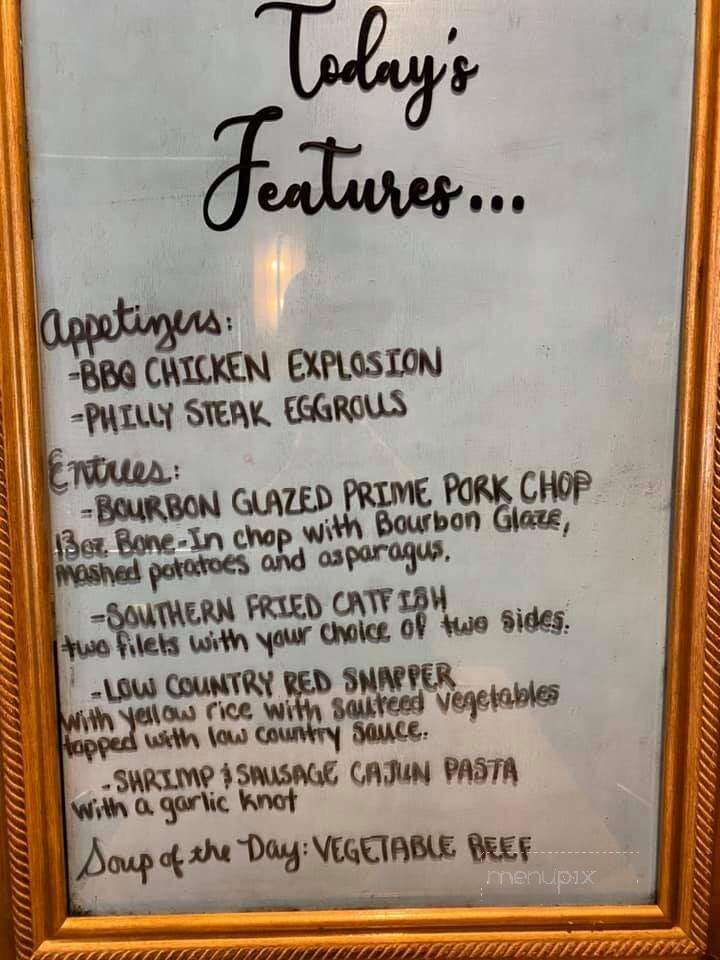 Today's
Features...
Appetizers:
-BBQ CHICKEN EXPLOSION
-PHILLY STEAK EGGROLLS
Entrees:
-BOURBON GLAZED PRIME PORK CHOP
13oz. Bone-In chop with Bourbon Glaze,
mashed potatoes and asparagus.
-SOUTHERN FRIED CATFISH
two filets with your choice of two sides.
-LOW COUNTRY RED SNAPPER
with yellow rice with sauteed vegetables
topped with low country sauce.
-SHRIMP & SAUSAGE CAJUN PASTA
with a garlic knot
Soup of the Day: VEGETABLE BEEF
menupix